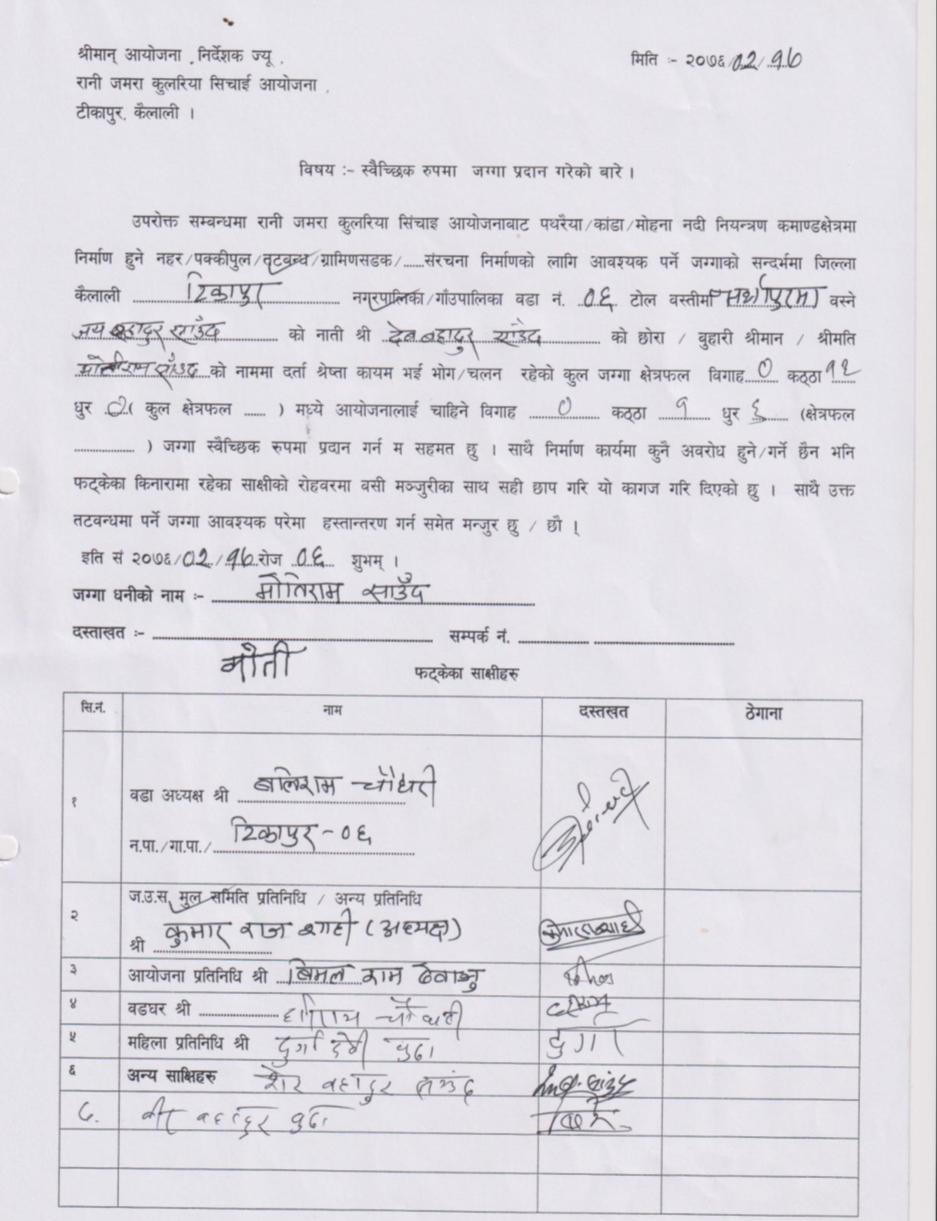 श्रीमान् आयोजना निर्देशक ज्यू,
मिति :- २०७६/०२/१७
रानी जमरा कुलरिया सिचाई आयोजना,
टीकापुर, कैलाली ।
विषय :- स्वैच्छिक रुपमा जग्गा प्रदान गरेको बारे ।
उपरोक्त सम्बन्धमा रानी जमरा कुलरिया सिंचाइ आयोजनाबाट पथरैया/कांडा/मोहना नदी नियन्त्रण कमाण्डक्षेत्रमा
निर्माण हुने नहर/पक्कीपुल/तटबन्ध/ग्रामिणसडक/......संरचना निर्माणको लागि आवश्यक पर्ने जग्गाको सन्दर्भमा जिल्ला
कैलाली टिकापुर नगरपालिका/गाँउपालिका वडा नं. ०६ टोल वस्तीमा वस्ने
जय बहादुर साउँद को नाती श्री देव बहादुर साउँद को छोरा / बुहारी श्रीमान / श्रीमति
मोतीराम साउँद को नाममा दर्ता श्रेष्ता कायम भई भोग/चलन रहेको कुल जग्गा क्षेत्रफल विगाह ० कठ्ठा १२
धुर कुल क्षेत्रफल ...... ) मध्ये आयोजनालाई चाहिने विगाह ० कठ्ठा १ धुर ६ (क्षेत्रफल
.................. ) जग्गा स्वैच्छिक रुपमा प्रदान गर्न म सहमत छु । साथै निर्माण कार्यमा कुनै अवरोध हुने/गर्ने छैन भनि
फट्केका किनारामा रहेका साक्षीको रोहवरमा वसी मञ्जुरीका साथ सही छाप गरि यो कागज गरि दिएको छु । साथै उक्त
तटवन्धमा पर्ने जग्गा आवश्यक परेमा हस्तान्तरण गर्न समेत मन्जुर छु / छौ ।
इति सं २०७६/०२/१७ रोज ०६ शुभम् ।
जग्गा धनीको नाम :- मोतिराम साउँद
दस्ताखत :- सम्पर्क नं.
मोती
फट्केका साक्षीहरु
सि.नं. नाम दस्तखत ठेगाना
१ वडा अध्यक्ष श्री बलिराम चौधरी
न.पा./गा.पा./ टिकापुर - ०६
२ ज.उ.स. मुल समिति प्रतिनिधि / अन्य प्रतिनिधि
श्री कुमार राज शाही (अध्यक्ष)
३ आयोजना प्रतिनिधि श्री बिमल राम
४ वडघर श्री चौधरी
५ महिला प्रतिनिधि श्री दुर्गा देवी बुढा दुर्गा
६ अन्य साक्षिहरु शेर बहादुर साउँद
७. वीर बहादुर बुढा